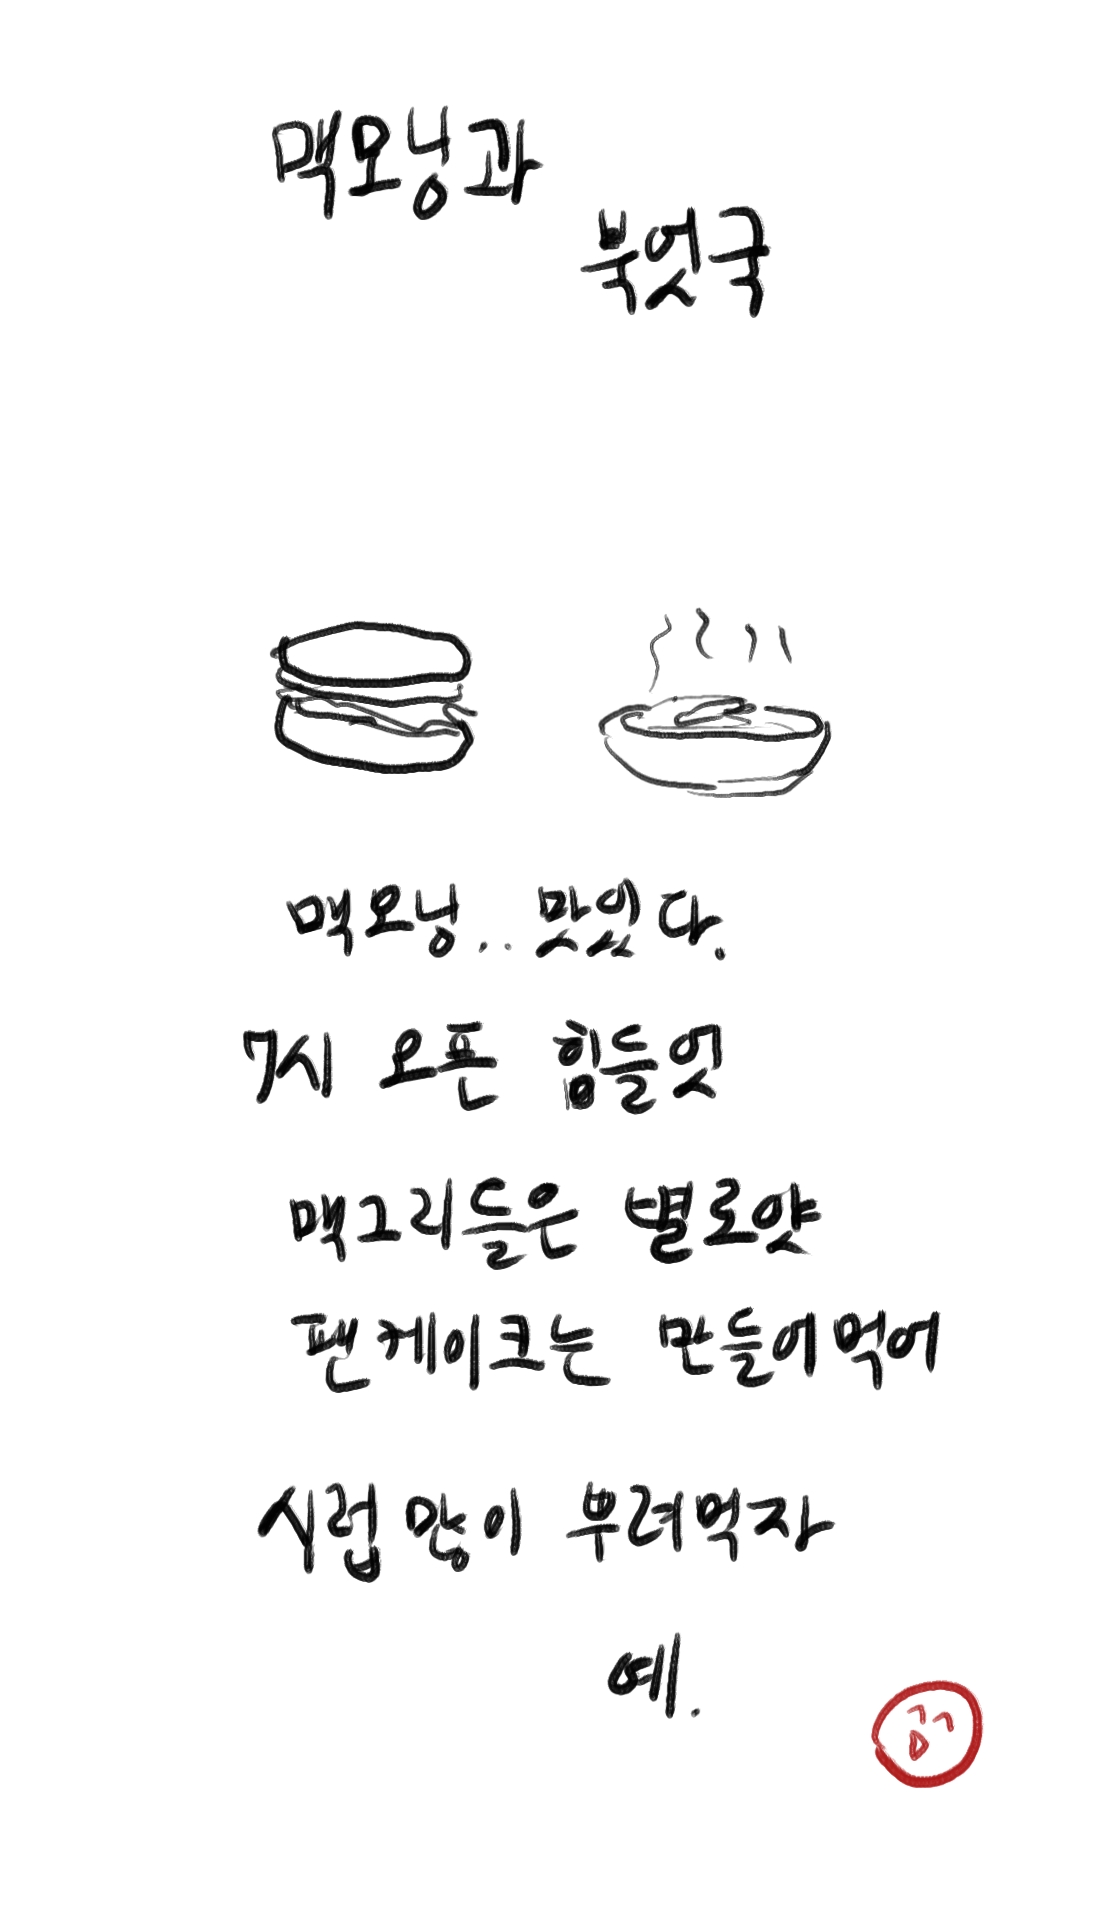 맥모닝과
북엇국
맥모닝.. 맛있다.
7시 오픈 힘들엇
맥그리들은 별로얏
팬케이크는 만들어먹어
시럽많이 부려먹자
예.